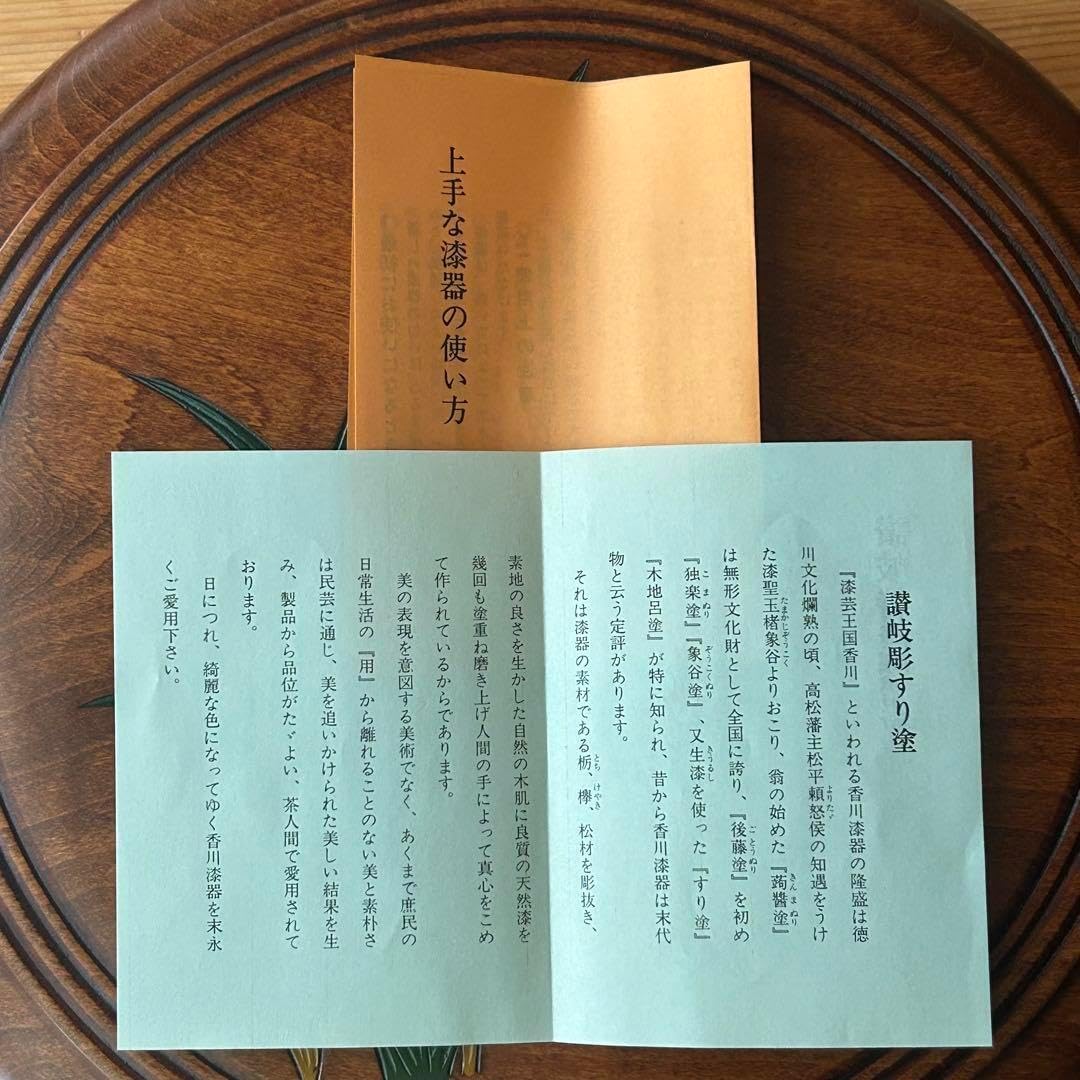 上手な漆器の使い方
讃岐彫すり塗
『漆芸王国香川』といわれる香川漆器の隆盛は徳
川文化爛熟の頃、高松藩主松平頼恕侯の知遇をうけ
よりたゞ
た漆聖玉楮象谷よりおこり、翁の始めた『蒟醬塗』
たまかじぞうこく
きんまぬり
は無形文化財として全国に誇り、『後藤塗』を初め
ごとうぬり
『独楽塗』『象谷塗』、又生漆を使った『すり塗』
こまぬり
ぞうこくぬり
きうるし
『木地呂塗』が特に知られ、昔から香川漆器は末代
物と云う定評があります。
それは漆器の素材である栃、欅、松材を彫抜き、
とち
けやき
素地の良さを生かした自然の木肌に良質の天然漆を
幾回も塗重ね磨き上げ人間の手によって真心をこめ
て作られているからであります。
美の表現を意図する美術でなく、あくまで庶民の
日常生活の『用』から離れることのない美と素朴さ
は民芸に通じ、美を追いかけられた美しい結果を生
み、製品から品位がたゞよい、茶人間で愛用されて
おります。
日につれ、綺麗な色になってゆく香川漆器を末永
くご愛用下さい。